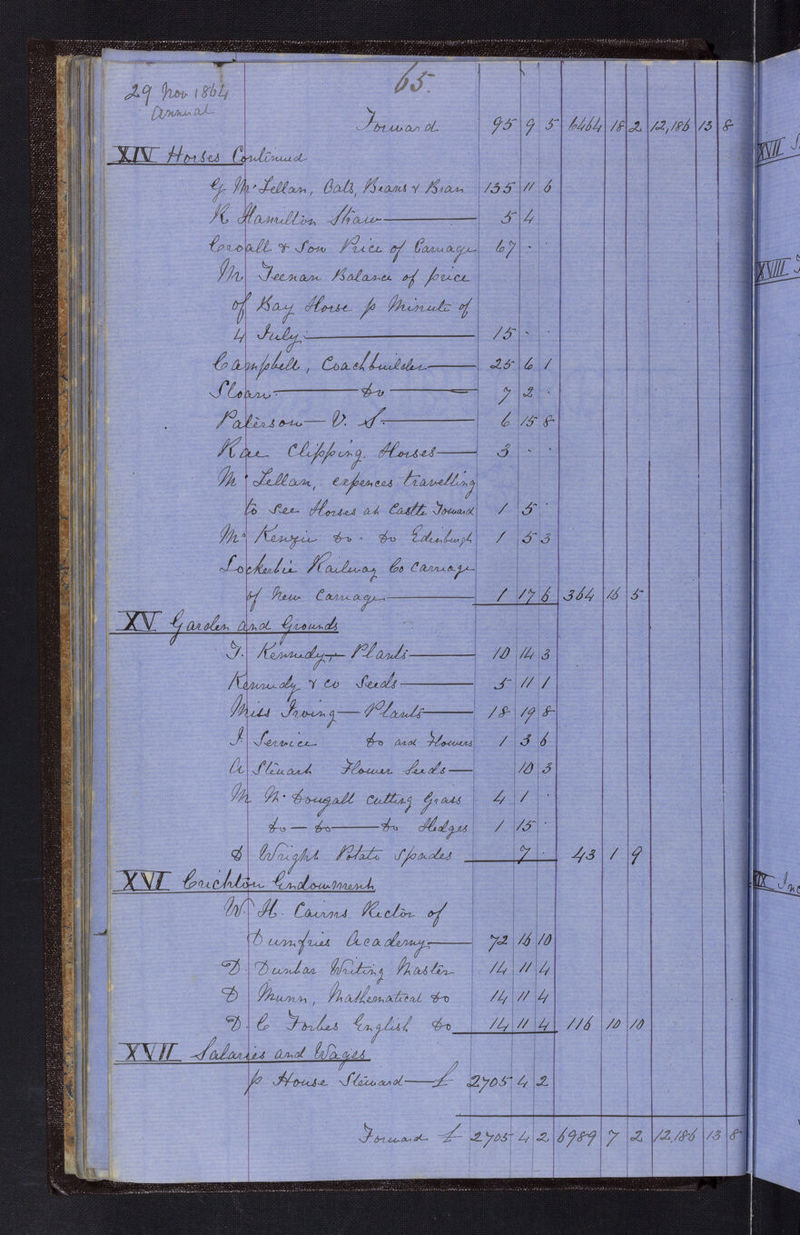 29 Nov 1864
Annual
65.
Forward 95 9 5 6464 18 2 12,186 13 8
XIV Horses Continued
G McLellan, Oats, Beans & Bran 135 11 6
R Hamilton Straw — 5 4
Croall & Son Price of Carriage 67 - -
Mr Teenan Balance of price
of Bay Horse p Minute of
4 July. — 15 - -
Campbell, Coachbuilder — 25 6 1
Sloan — Do — 7 2 -
Paterson — V. S. — 6 15 8
Rae Clipping Horses — 3 - -
McLellan, expences travelling
to see Horses at Castle Toward 1 5 -
McKenzie Do - Do Edinburgh 1 5 3
Lockerbie Railway Co Carriage
of New Carriage — 1 17 6 364 16 5
XV Garden and Grounds
T. Kennedy, — Plants — 10 14 3
Kennedy & Co Seeds — 5 11 1
Miss Irving — Plants — 18 19 8
J Service Do and Flowers 1 3 6
A Stewart Flower Seeds — 10 3
Mr McDougall Cutting Grass 4 1 -
Do — Do — Do Hedges 1 15 -
D Wright Potato Spades 7 - 43 1 9
XVI Crichton Endowment
W. H. Cairns Rector of
Dumfries Academy — 72 16 10
D Dunbar Writing Master 14 11 4
D Munn, Mathematical Do 14 11 4
D. C Forbes English Do 14 11 4 116 10 10
XVII Salaries and Wages
p House Steward — £ 2705 4 2
Forward £ 2705 4 2 6989 7 2 12,186 13 8
XVII
XVIII
XIX Inc